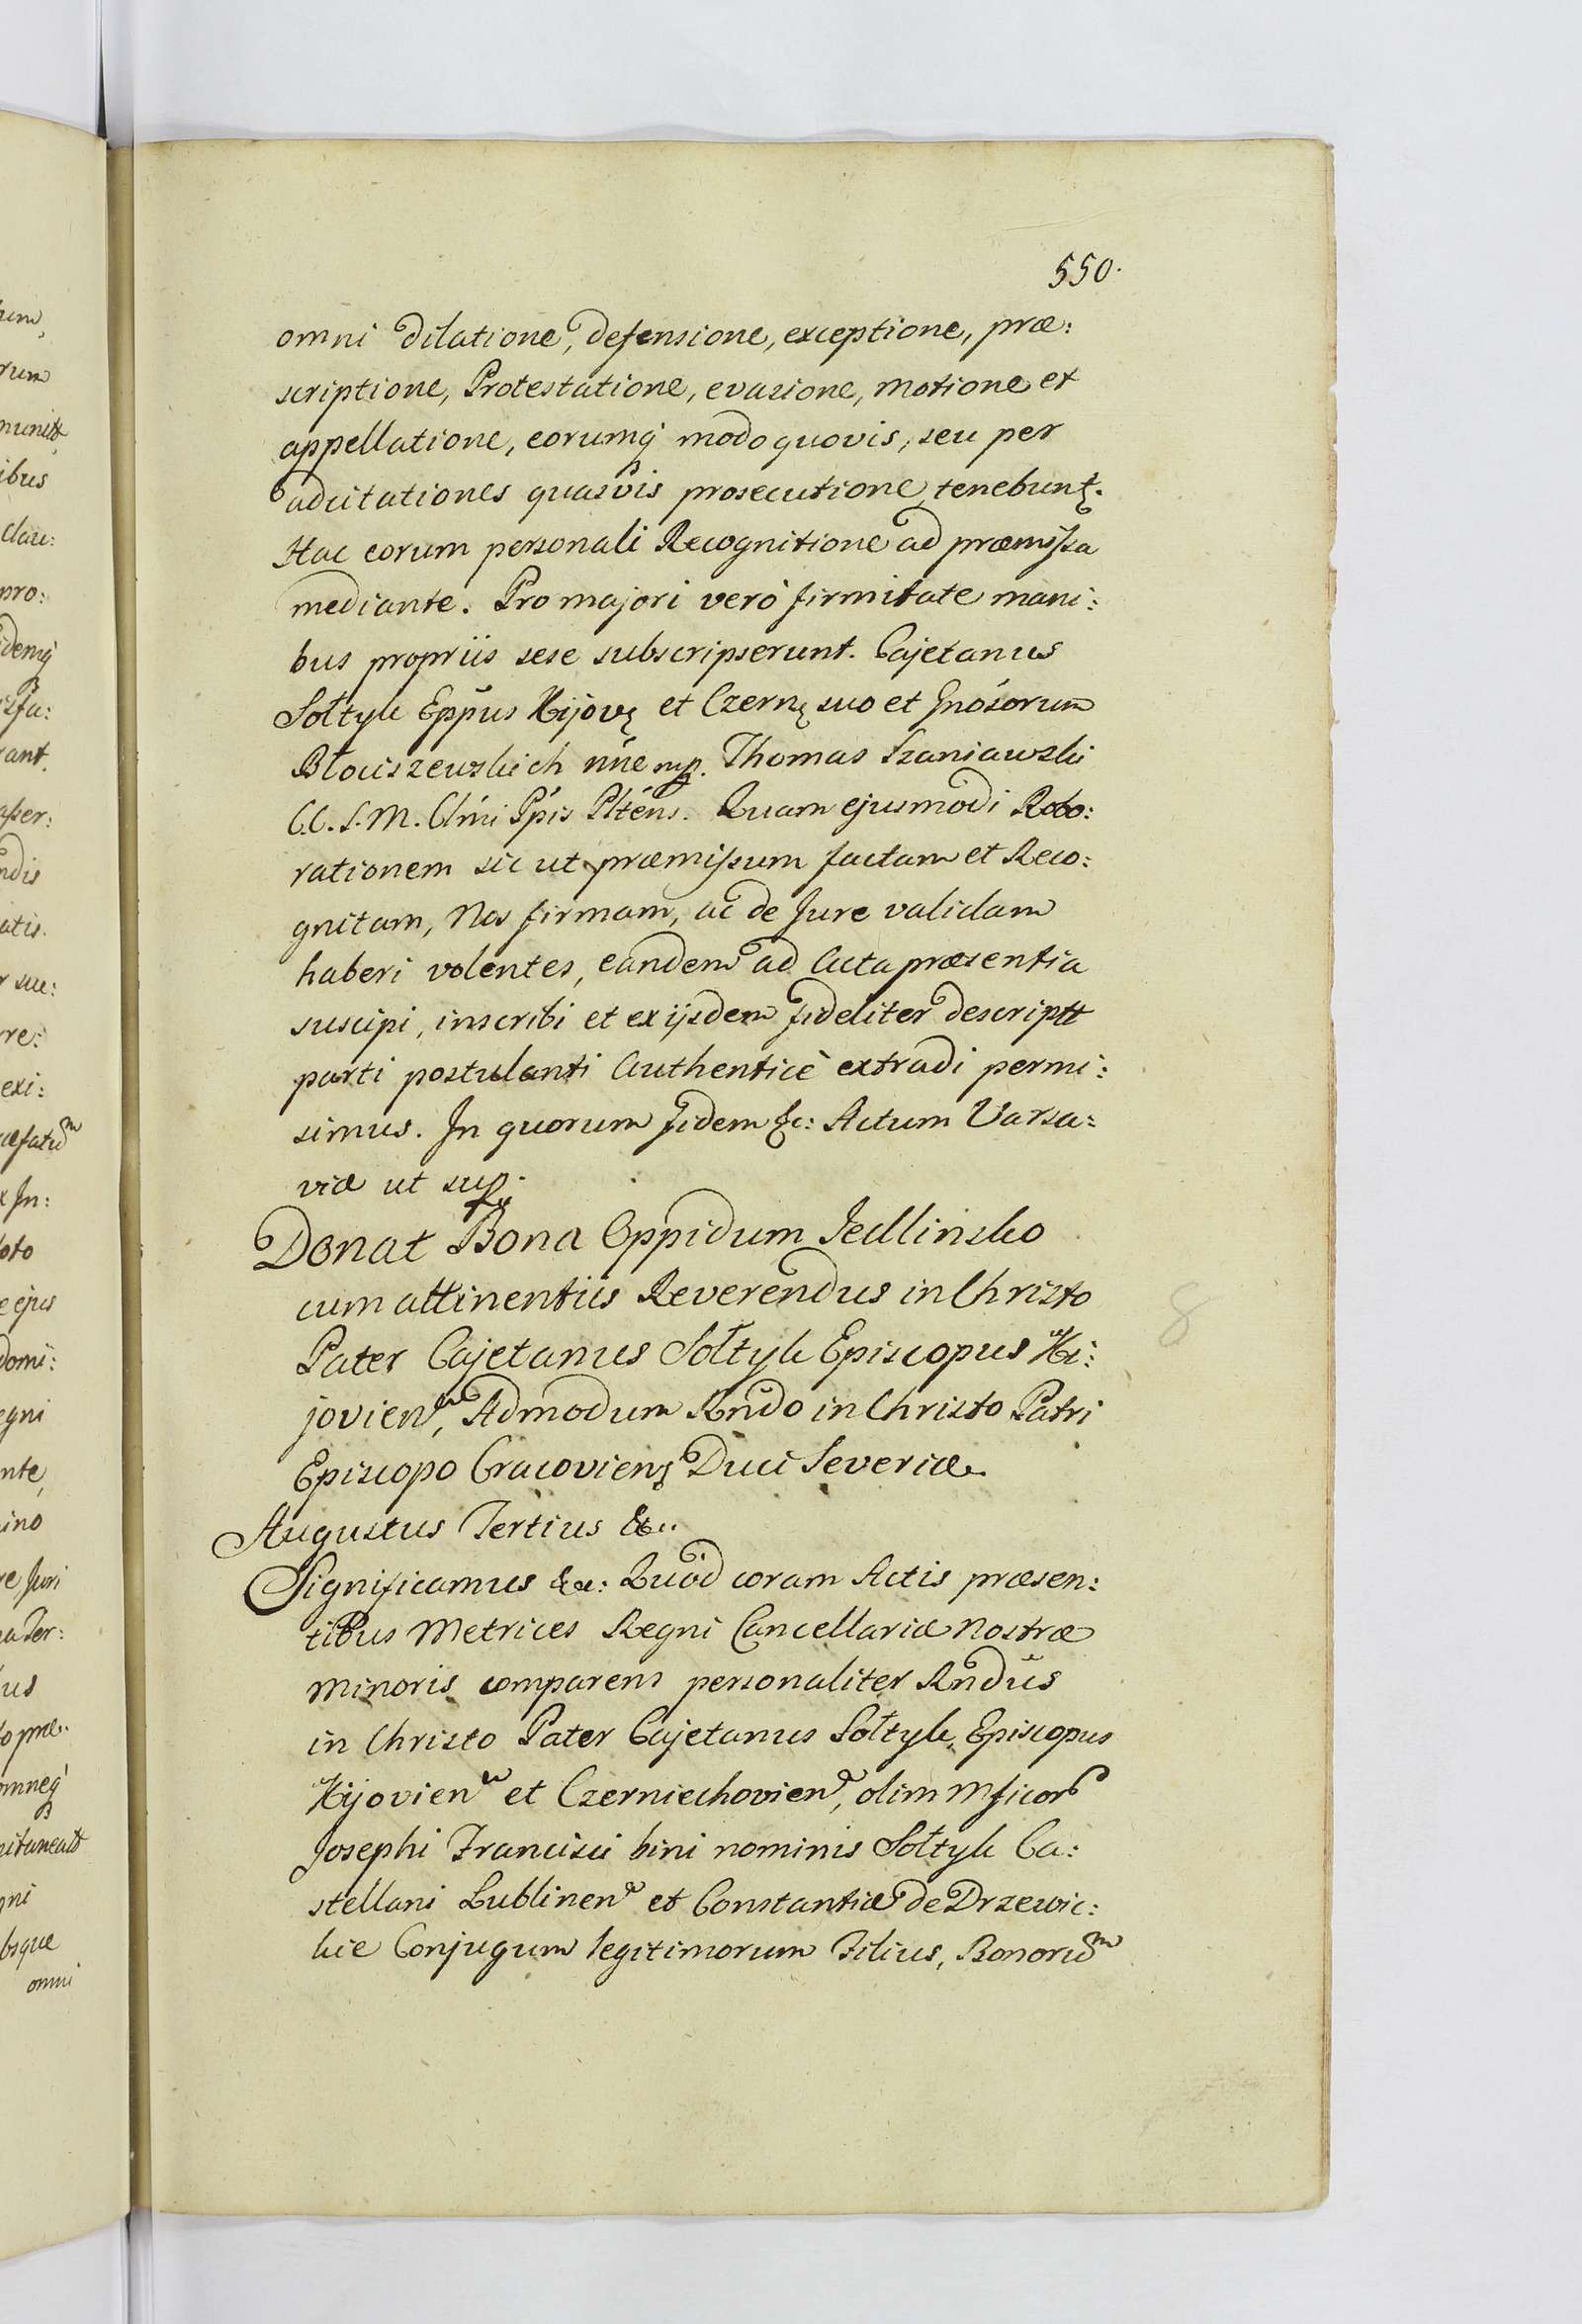 550.
omni dilatione, defensione, exceptione, præ:
scriptione, Protestatione, evasione, motione et
appellatione, eorumq́ modo quovis, seu per
adcitationes quasvis prosecutione, tenebunt.
Hac eorum personali Recognitione ad præmissa
mediante. Pro majori verò firmitate mani:
bus propriis sese subscripserunt. Cajetanus
Sołtyk Eppūs Kijovę et Czernę suo et Gnōsorum
Błociszewskich nn̄e mp. Thomas Szaniawski
C.C.S.M. Cłmi Ppis Płtēns. Quam ejusmodi Robo:
rationem sic ut præmissum factam et Reco:
gnitam, Nos firmam, ac de Jure validam
haberi volentes, eandem ad Acta præsentia
suscipi, inscribi et ex ijsdem fideliter descriptt
parti postulanti Authenticè extradi permi:
simus. In quorum fidem &c: Actum Varsa:
viæ ut sup.
Donat Bona Oppidum Jedlinsko
cum attinentiis Reverendus in Christo
Pater Cajetanus Sołtyk Episcopus Ki:
jovien, Admodum Rndo in Christo Patri
Episcopo Cracovienę Duci Severiæ
Augustus Tertius &c.
Significamus &c: Quòd coram Actis præsen:
tibus Metrices Regni Cancellariæ Nostræ
Minoris comparens personaliter Rndūs
in Christo Pater Cajetanus Sołtyk, Episcopus
Kijovien et Czerniechovien, olim Mficor
Josephi Francisci bini nominis Sołtyk Ca:
stellani Lublinen et Constantiæ de Drzewic:
kie Conjugum legitimorum Filius, Bonorum
8